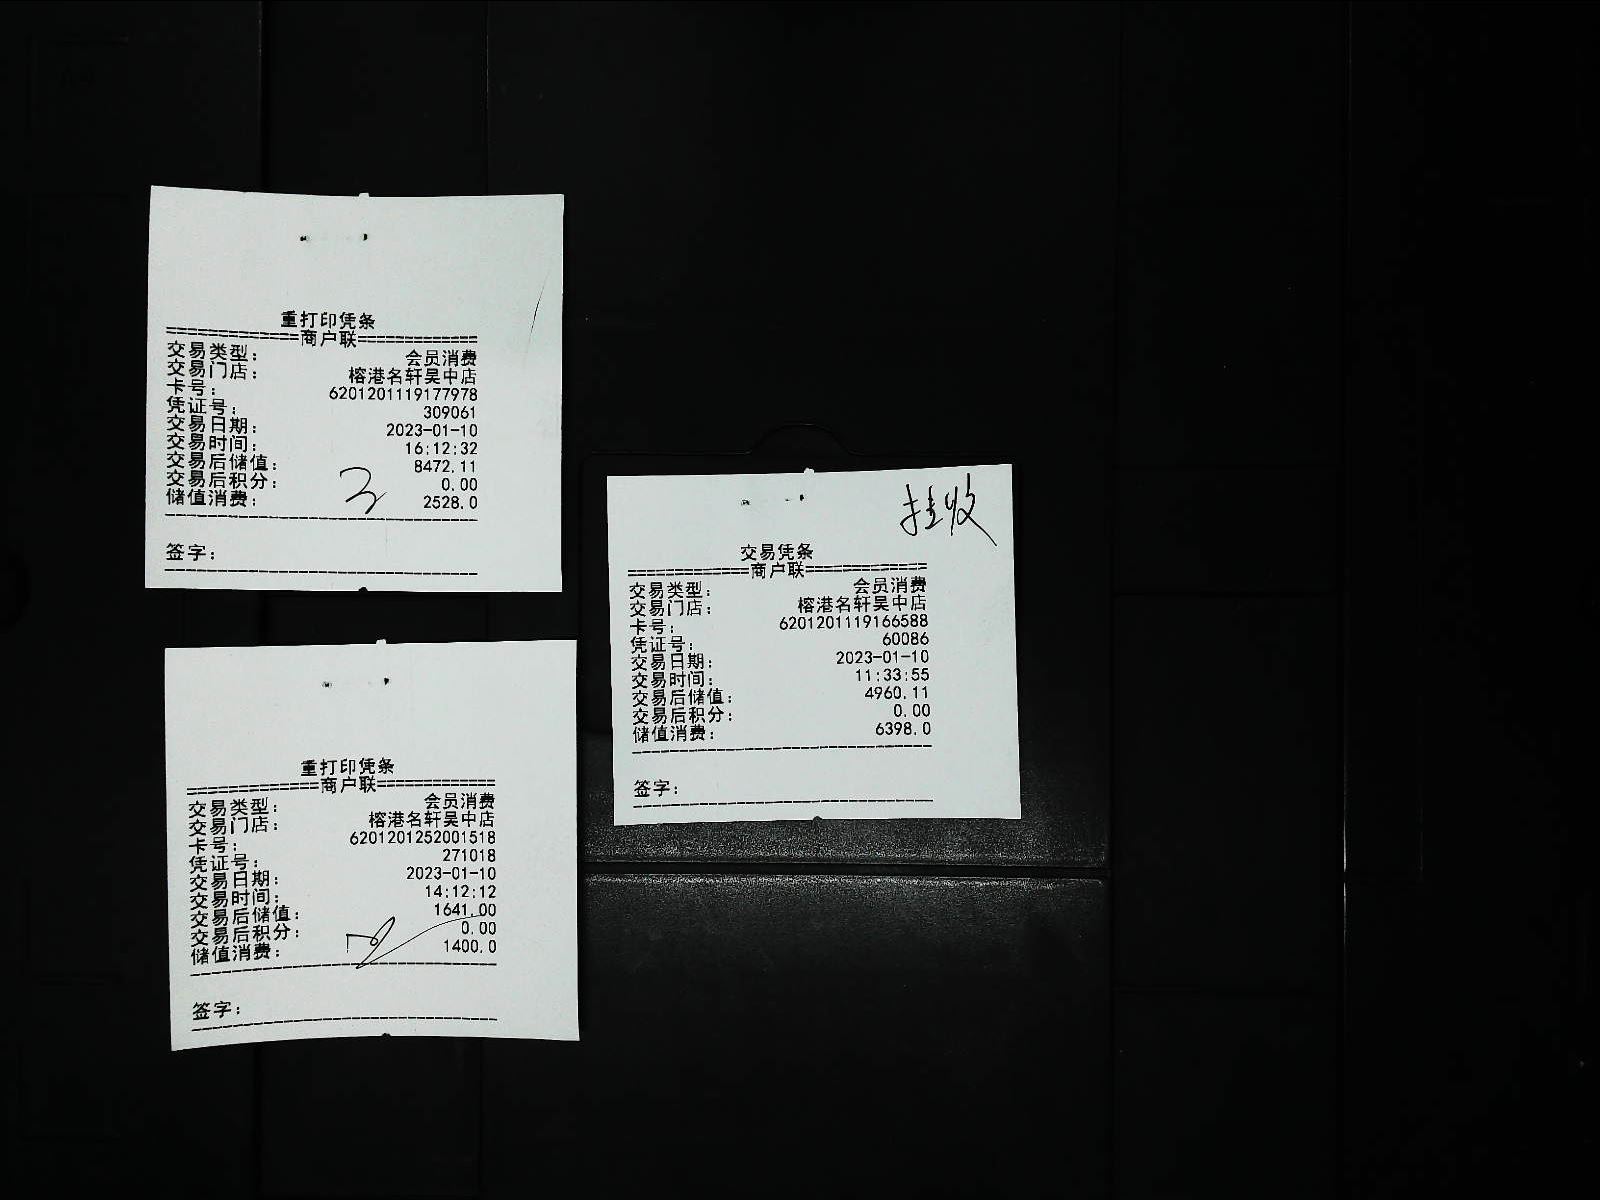 重打印凭条
=============商户联=============
交易类型： 会员消费
交易门店： 榕港名轩吴中店
卡号： 6201201119177978
凭证号： 309061
交易日期： 2023-01-10
交易时间： 16:12:32
交易后储值： 8472.11
交易后积分： 0.00
储值消费： 2528.0
签字：
重打印凭条
=============商户联=============
交易类型： 会员消费
交易门店： 榕港名轩吴中店
卡号： 6201201252001518
凭证号： 271018
交易日期： 2023-01-10
交易时间： 14:12:12
交易后储值： 1641.00
交易后积分： 0.00
储值消费： 1400.0
签字：
挂收
交易凭条
=============商户联=============
交易类型： 会员消费
交易门店： 榕港名轩吴中店
卡号： 6201201119166588
凭证号： 60086
交易日期： 2023-01-10
交易时间： 11:33:55
交易后储值： 4960.11
交易后积分： 0.00
储值消费： 6398.0
签字：